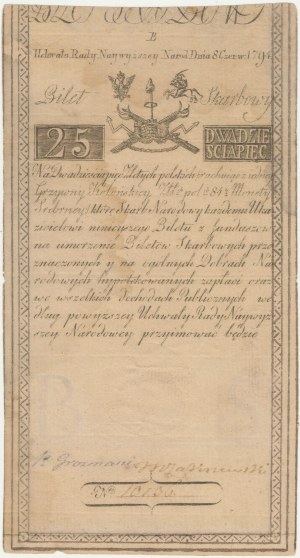 B
Uchwała Rady Naywyzszey Narod: Dnia 8 Czerw: 1794
Bilet Skarbowy
25 DWADZIE
SCIA PIĘC
Na Dwadziescia pięc Złotych polskich rachuiąc z iedney
Grzywny Kolońskiey Złł: pol: 84½ Monety
Srebrney, które Skarb Narodowy każdemu Oka
zicielowi ninieyszego Biletu z Funduszow
na umorzenie Biletow Skarbowych prze
znaczonych y na ogolnych Dobrach Na
rodowych hypotekowanych zapłaci oraz
we wszelkich dochodach Publicznych we
dług powyzszey Uchwały Rady Naywyz
szey Narodowey przyimować będzie
Nº